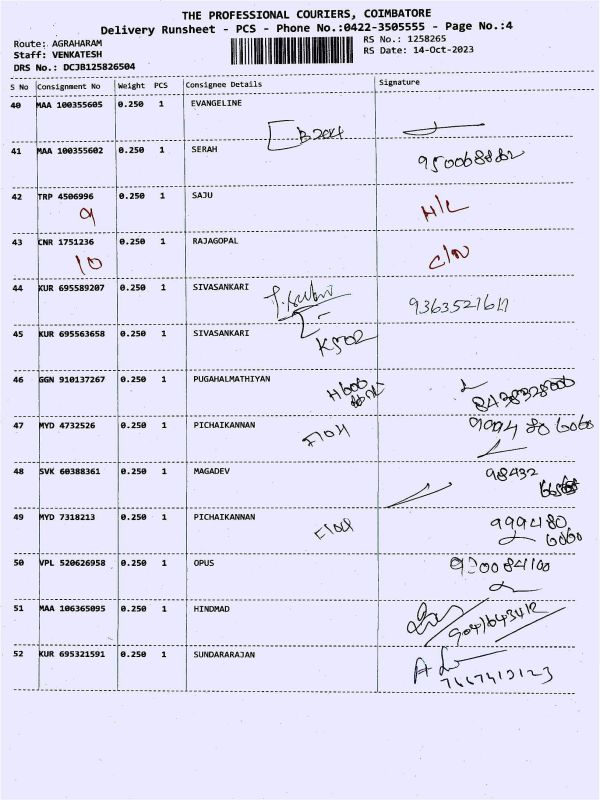 THE PROFESSIONAL COURIERS, COIMBATORE
Delivery Runsheet - PCS - Phone No.:0422-3505555 - Page No.:4
Route: AGRAHARAM
RS No.: 1258265
Staff: VENKATESH
RS Date: 14-Oct-2023
DRS No.: DCJB125826504
S No Consignment No Weight PCS Consignee Details Signature
40 MAA 100355605 0.250 1 EVANGELINE
B204
41 MAA 100355602 0.250 1 SERAH
42 TRP 4506996 0.250 1 SAJU
9 H/L
43 CNR 1751236 0.250 1 RAJAGOPAL
10
44 KUR 695589207 0.250 1 SIVASANKARI
45 KUR 695563658 0.250 1 SIVASANKARI
K502
46 GGN 910137267 0.250 1 PUGAHALMATHIYAN
47 MYD 4732526 0.250 1 PICHAIKANNAN
9994 80 6060
48 SVK 60388361 0.250 1 MAGADEV
98432
49 MYD 7318213 0.250 1 PICHAIKANNAN
999480
6060
50 VPL 520626958 0.250 1 OPUS
51 MAA 106365095 0.250 1 HINDMAD
52 KUR 695321591 0.250 1 SUNDARARAJAN